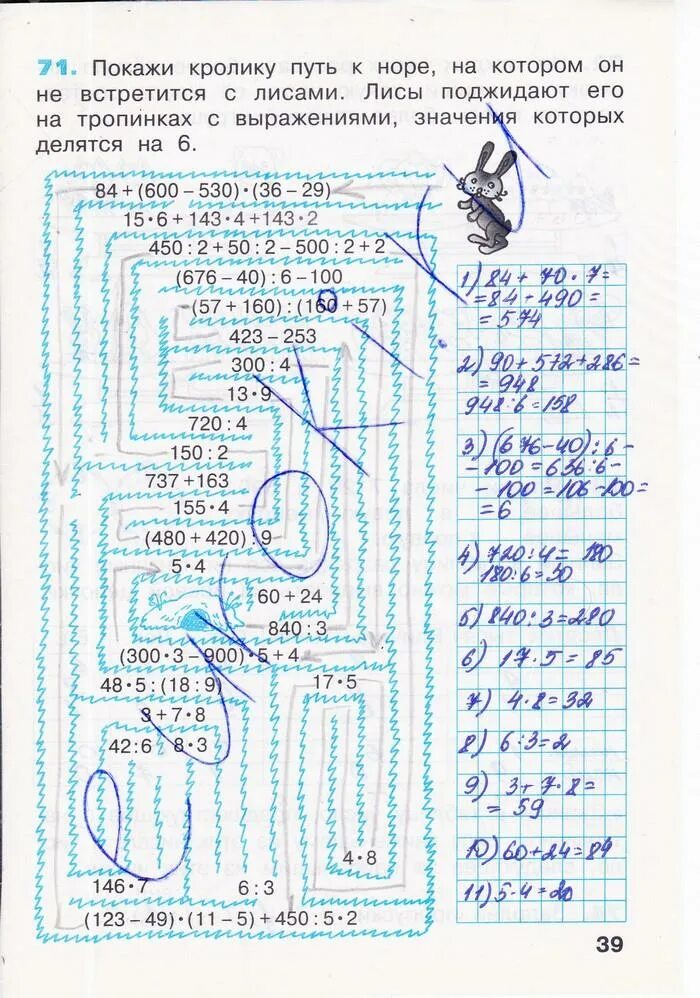 71. Покажи кролику путь к норе, на котором он
не встретится с лисами. Лисы поджидают его
на тропинках с выражениями, значения которых
делятся на 6.
84 + (600 – 530) · (36 – 29)
15 · 6 + 143 · 4 + 143 · 2
450 : 2 + 50 : 2 – 500 : 2 + 2
(676 – 40) : 6 – 100
(57 + 160) : (160 + 57)
423 – 253
300 : 4
13 · 9
720 : 4
150 : 2
737 + 163
155 · 4
(480 + 420) : 9
5 · 4
60 + 24
840 : 3
(300 · 3 – 900) · 5 + 4
48 · 5 : (18 : 9)
17 · 5
3 + 7 · 8
42 : 6
8 · 3
4 · 8
146 · 7
6 : 3
(123 – 49) · (11 – 5) + 450 : 5 · 2
1) 84 + 70 · 7 =
= 84 + 490 =
= 574
2) 90 + 572 + 286 =
= 948
948 : 6 = 158
3) (676 – 40) : 6 –
– 100 = 636 : 6 –
– 100 = 106 – 100 =
= 6
4) 720 : 4 = 180
180 : 6 = 30
5) 840 : 3 = 280
6) 17 · 5 = 85
7) 4 · 8 = 32
8) 6 : 3 = 2
9) 3 + 7 · 8 =
= 59
10) 60 + 24 = 84
11) 5 · 4 = 20
39